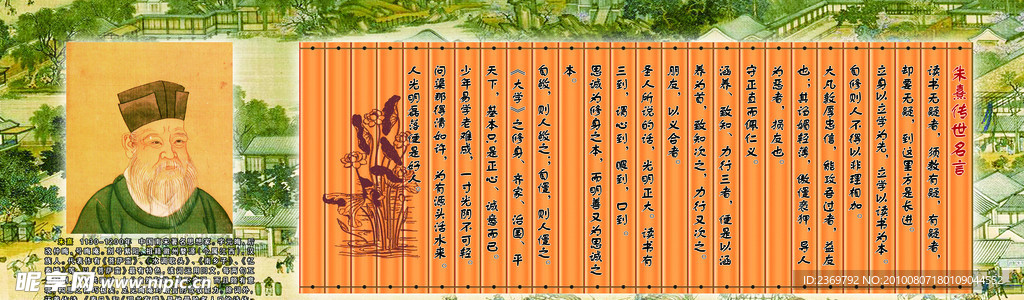 朱熹传世名言
读书无疑者，须教有疑，有疑者，
却要无疑，到这里方是长进。
立身以立学为先，立学以读书为本。
自修则人不得以非理相加。
大凡敦厚忠信，能攻吾过者，益友
也；其谄媚轻薄，傲慢亵狎，导人
为恶者，损友也
守正直而佩仁义。
涵养、致知、力行三者，便是以涵
养为首，致知次之，力行又次之。
朋友，以义合者。
圣人所说的话，光明正大。读书有
三到，谓心到，眼到，口到。
思诚为修身之本，而明善又为思诚之
本。
自敬，则人敬之；自慢，则人慢之。
《大学》之修身、齐家、治国、平
天下，基本只是正心、诚意而已。
少年易学老难成，一寸光阴不可轻
问渠那得清如许，为有源头活水来。
人光明磊落便是好人。
朱熹 1130-1200年 中国南宋著名思想家，字元晦，后
昵享网 www.nipic.cn
ID:2369792 NO:20100807180109044552